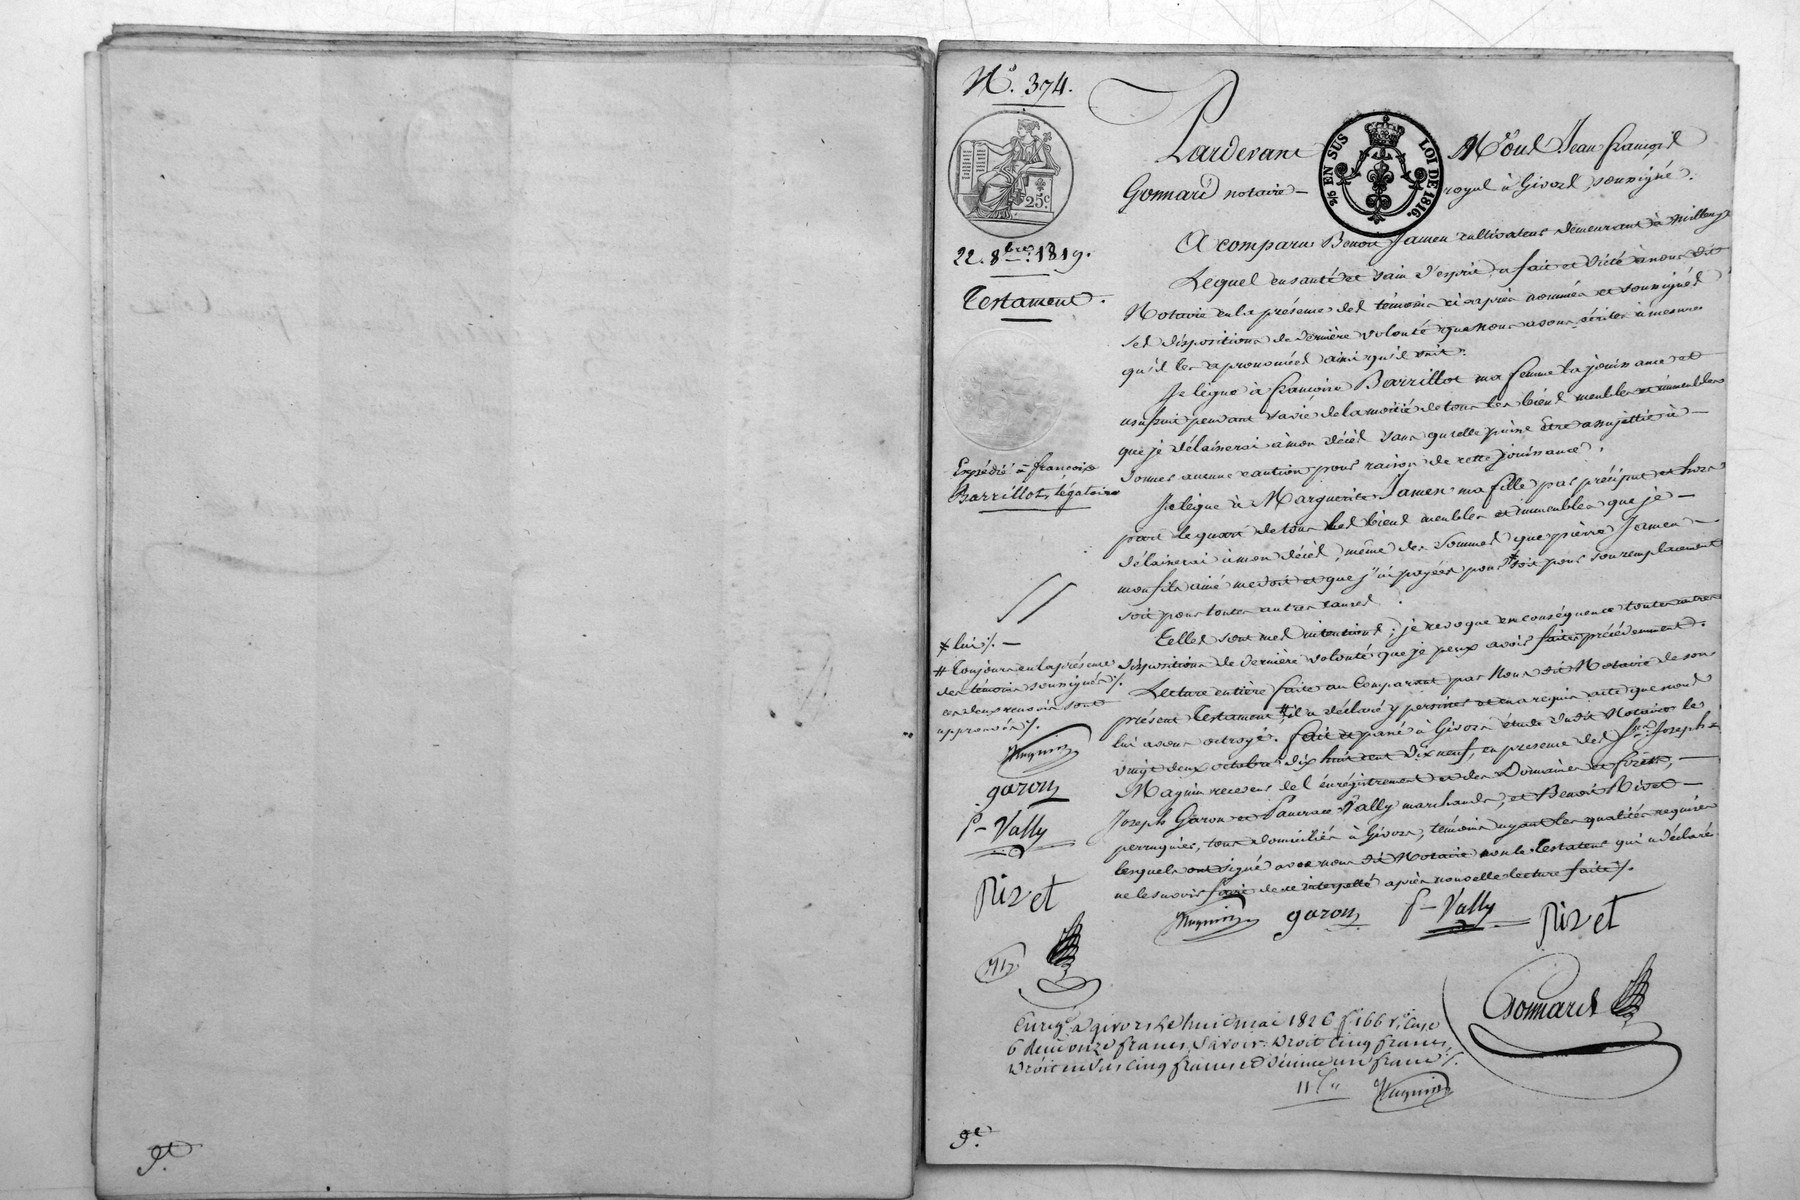 N.° 374.
25 c
22. 8bre 1819.
Testament.
Expédié à françoise
Barrillot, légataire
EN SUS LOI DE 1816.
Pardevant Nous Jean françois
Gonnard notaire royal à Givors, soussigné.
A comparu Benoît Jamen cultivateur demeurant à Millery
Lequel en santé et sain d'esprit a fait et dicté à nous dit
Notaire en la présence des témoins ci après nommés et soussignés
ses dispositions de dernière volonté que nous avons écrites à mesure
qu'il les a prononcées ainsi qu'il suit.
Je lègue à françoise Barrillot ma femme la jouissance et
usufruit pendant sa vie, de la moitié de tous les biens meubles et immeubles
que je délaisserai à mon décès sans qu'elle puisse être assujettie à
donner aucune caution pour raison de cette jouissance.
Je lègue à Marguerite Jamen ma fille par préciput et hors
part le quart de tous les biens meubles et immeubles que je
délaisserai à mon décès, même des sommes que pierre Jamen
mon fils ainé me doit et que j'ai payées pour * soit pour son remplacement
soit pour toutes autres causes.
Telles sont mes intentions; je révoque en conséquence toutes autres
dispositions de dernière volonté que je peux avoir faites précédemment.
Lecture entière faite au Comparant par Nous dit Notaire de son
présent Testament # il a déclaré y persister et en a requis acte que nous
lui avons octroyé. fait et passé à Givors étude dudit Notaire le
vingt deux octobre dix huit cent dix neuf, en présence des Srs Joseph
Magnin receveur de l'enregistrement et des Domaines et forêts,
Joseph Garon et Pancrace Vally marchands, et Benoît Rivet
perruquier, tous domiciliés à Givors, témoins ayant les qualités requises
lesquels ont signé avec nous dit Notaire non le testateur qui a déclaré
ne le savoir faire de ce interpellé après nouvelle lecture faite ./.
* lui ./.
# Toujours en la présence
des témoins soussignés ./.
ces deux renvois sont
approuvés ./.
Magnin
garon
P- Vally
Rivet
Magnin garon P- Vally Rivet
Gonnard
Enregé. à givors le huit mai 1826 f° 166 v° case
6 reçu onze francs, Savoir: Droit cinq francs
Droit en sus cinq francs et décime un franc ./.
11 f "
Magnin